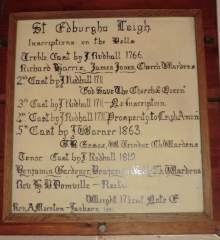 St Edburgha Leigh
Inscriptions on the Bells
Treble Cast by J Rudhall 1766
Richard Harris, James Jones Church Wardens
2nd Cast by J Rudhall 1711
"God Save The Church & Queen"
3rd Cast by J Rudhall 1711 No Inscription
2nd Cast by J Rudhall 1711 Prosperity to Leigh Amen
5th Cast by J Warner 1863
G R Essex, W Trinder Ch Wardens
Tenor Cast by J Rudhall 1819
Benjamin Gardener, Ch Wardens
Rev H B Domvile - Rector
Weight 17 cwt Note E
Rev A Morton